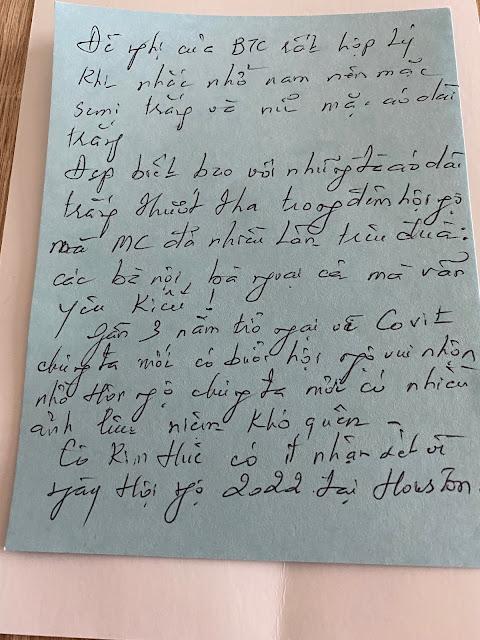 Đề nghị của BTC rất hợp lý
khi nhắc nhở nam nên mặc
sơmi trắng và nữ mặc áo dài
trắng
Đẹp biết bao với những tà áo dài
trắng thướt tha trong đêm hội ngộ
mà MC đã nhiều lần trêu đùa:
các bà nội bà ngoại cả mà vẫn
yêu kiều!
Gần 3 năm trở ngại về Covit
chúng ta mới có buổi hội ngộ vui nhộn
nhờ Hội ngộ chúng ta mới có nhiều
ảnh lưu niệm khó quên -
Cô Kim Huê có ít nhận xét về
ngày Hội ngộ 2022 tại Houston.